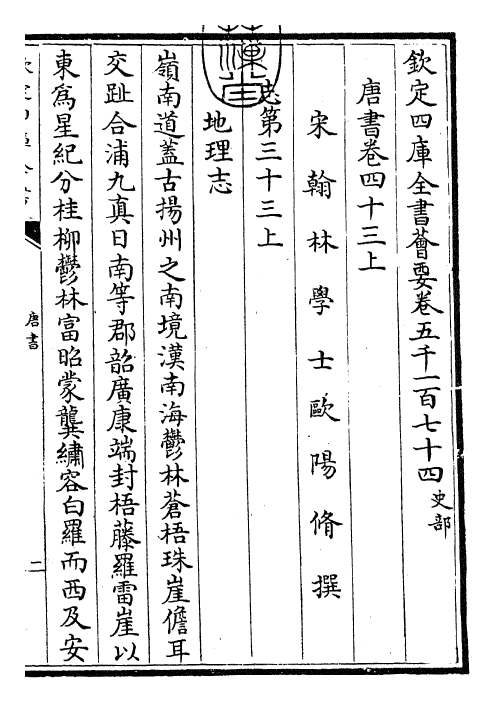 欽定四庫全書薈要卷五千一百七十四史部
唐書卷四十三上
宋翰林學士歐陽脩撰
志第三十三上
地理志
嶺南道蓋古揚州之南境漢南海鬱林蒼梧珠崖儋耳
交趾合浦九真日南等郡韶廣康端封梧藤羅雷崖以
東為星紀分桂柳鬱林富昭蒙龔繡容白羅而西及安
唐書
二